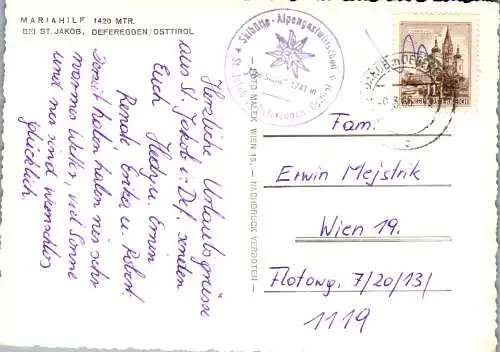 MARIAHILF 1420 MTR.
BEI ST. JAKOB, DEFEREGGEN/OSTTIROL
Herzliche Urlaubsgrüsse
aus St. Jakob i. Def. senden
Euch Hedy u. Erwin
Renate, Erika u. Robert.
Derzeit haben wir sehr
warmes Wetter, viel Sonne
und wir sind wunschlos
glücklich.
Skihütte - Alpengastwirtschaft
1741 m
St. Jakob i. Defereggen
WIEN 15, - NACHDRUCK VERBOTEN -
REPUBLIK ÖSTERREICH
Fam.
Erwin Mejstrik
Wien 19.
Flotowg. 7/20/13/
1119